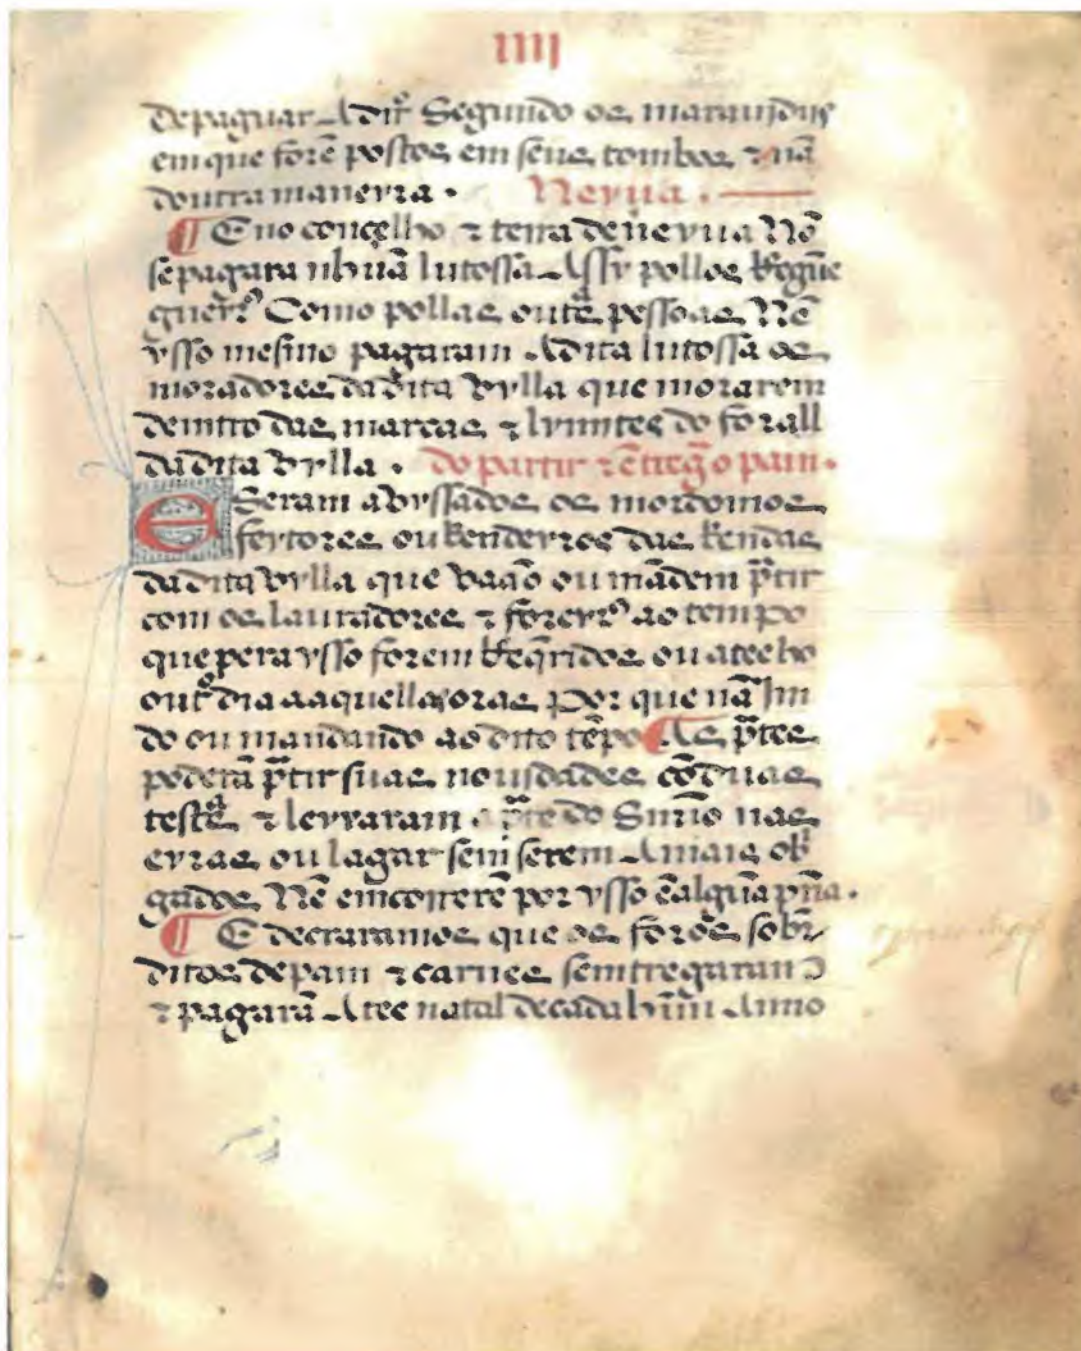 IIII
de paguar A dinrº Segundo os marauijdijs
em que forẽ postos em seus tombos ⁊ nã
doutra maneyra . Neyua .
¶ E no conçelho ⁊ terra de neyua Nõ
se pagara nhuã lutossa Assy pollos Regũe
gueyrºs Como pollas outas pessoas Nẽ
ysso mesmo pagaram A dita lutossa os
moradores da dita vylla que morarem
demtro das marcas ⁊ lymites do forall
da dita vylla . do partir ⁊ ẽtregar o pam .
E Seram abyssados os mordomos
feytores ou Rendeyros das Rendas
da dita vylla que vaão ou mãdem ptir
com os lauradores ⁊ foreyrºs ao tempo
que pera ysso forem Reqridos ou atee ho
outº dia aaquellas oras Por que nã Jm
do ou mandando ao dito tẽpo ¶ As ptes
poderã ptir suas nouidades cõ duas
testas ⁊ leyraram a pte do Snrio nas
eyras ou lagar sem serem A mais obri
gados Nẽ emcorrerẽ por ysso ẽ alguã pña .
¶ E decraramos que os foros sobre
ditos de pam ⁊ carnes semtregaram
⁊ pagarã Atee natal de cada huũ Anno